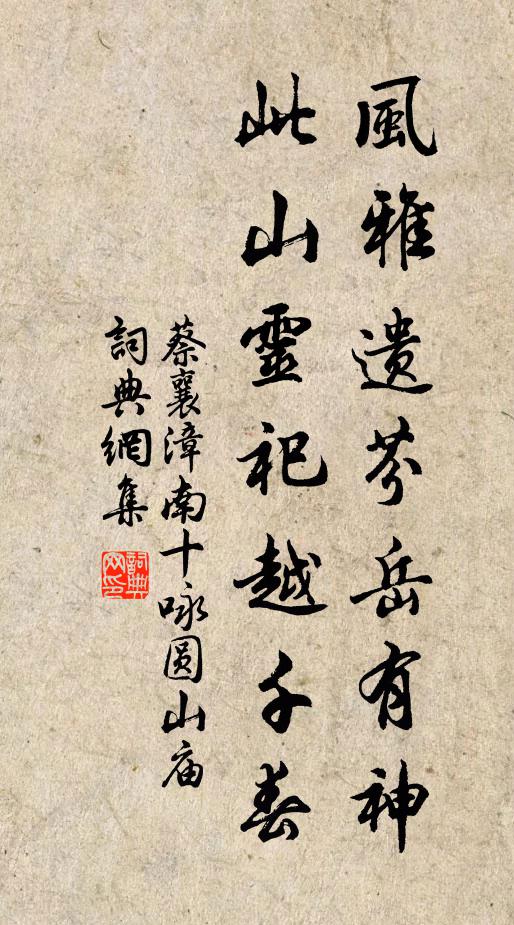 風雅遺芬岳有神
此山靈祀越千春
蔡襄漳南十咏圓山庙
詞典網集
詞典网印